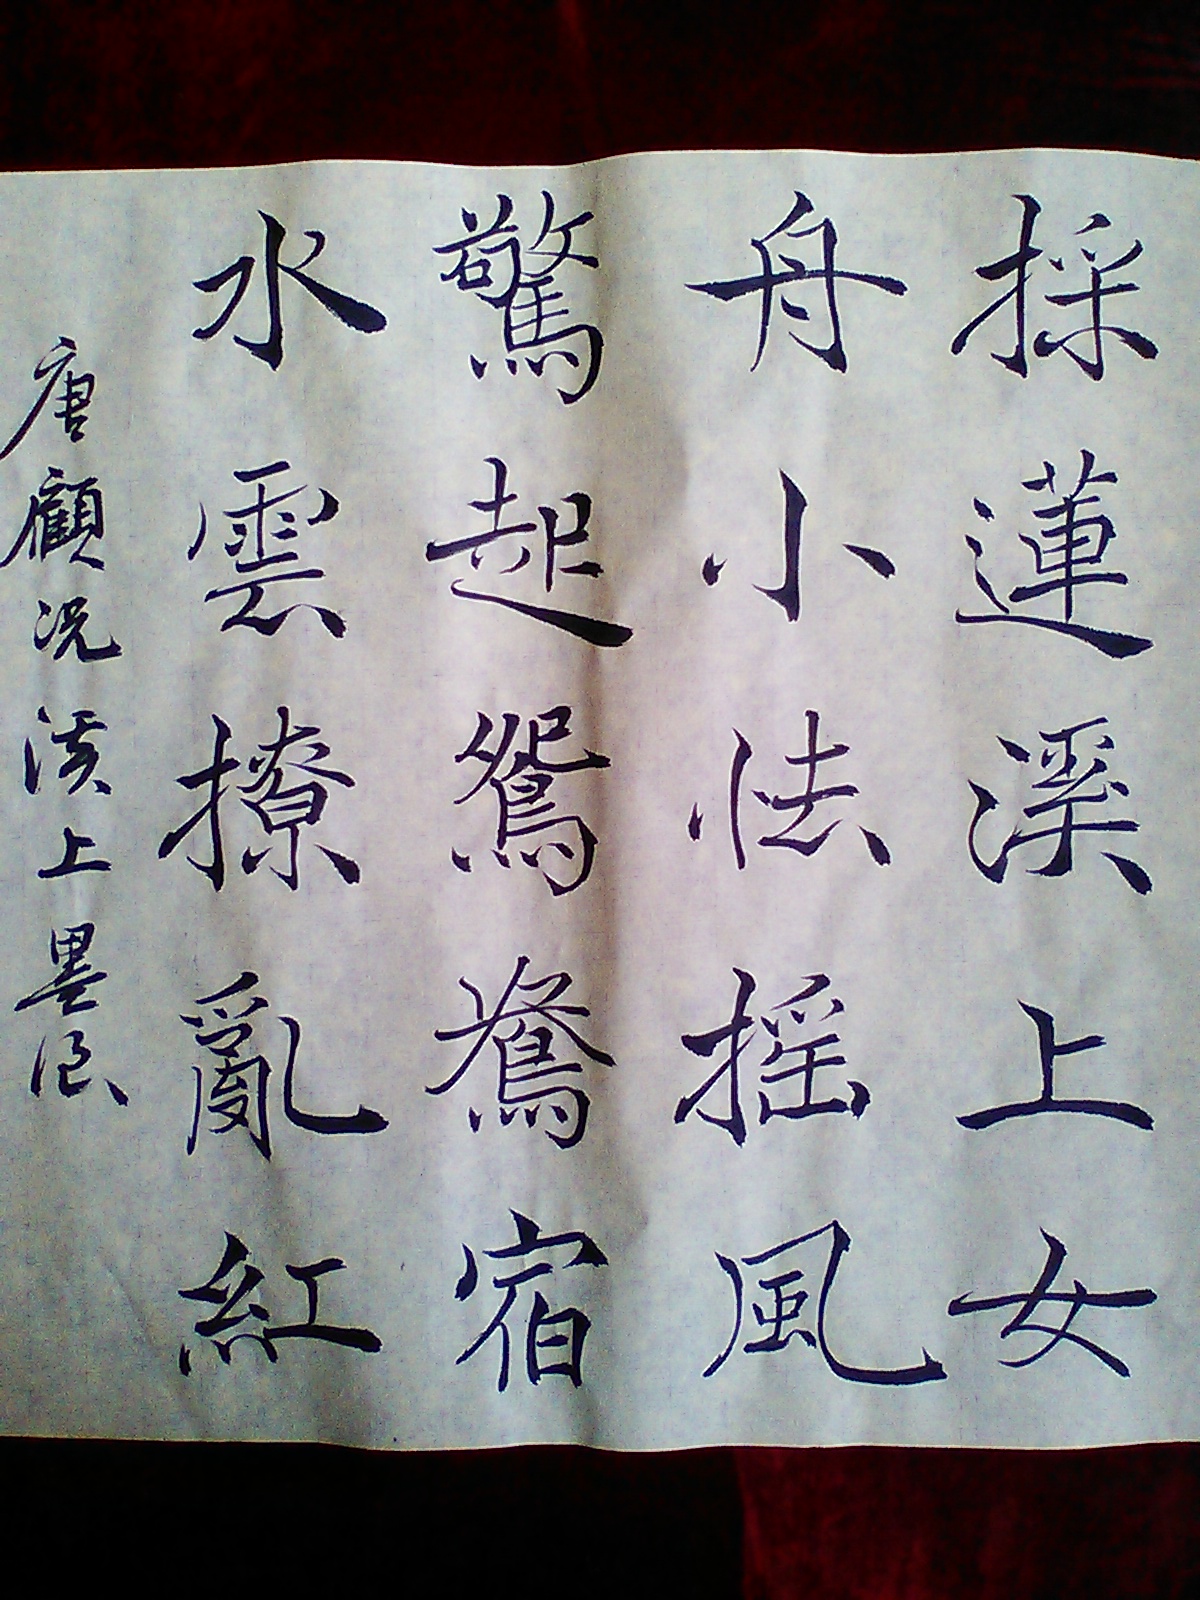 採蓮溪上女
舟小怯摇風
驚起鴛鴦宿
水雲撩亂紅
唐顧况溪上墨浪